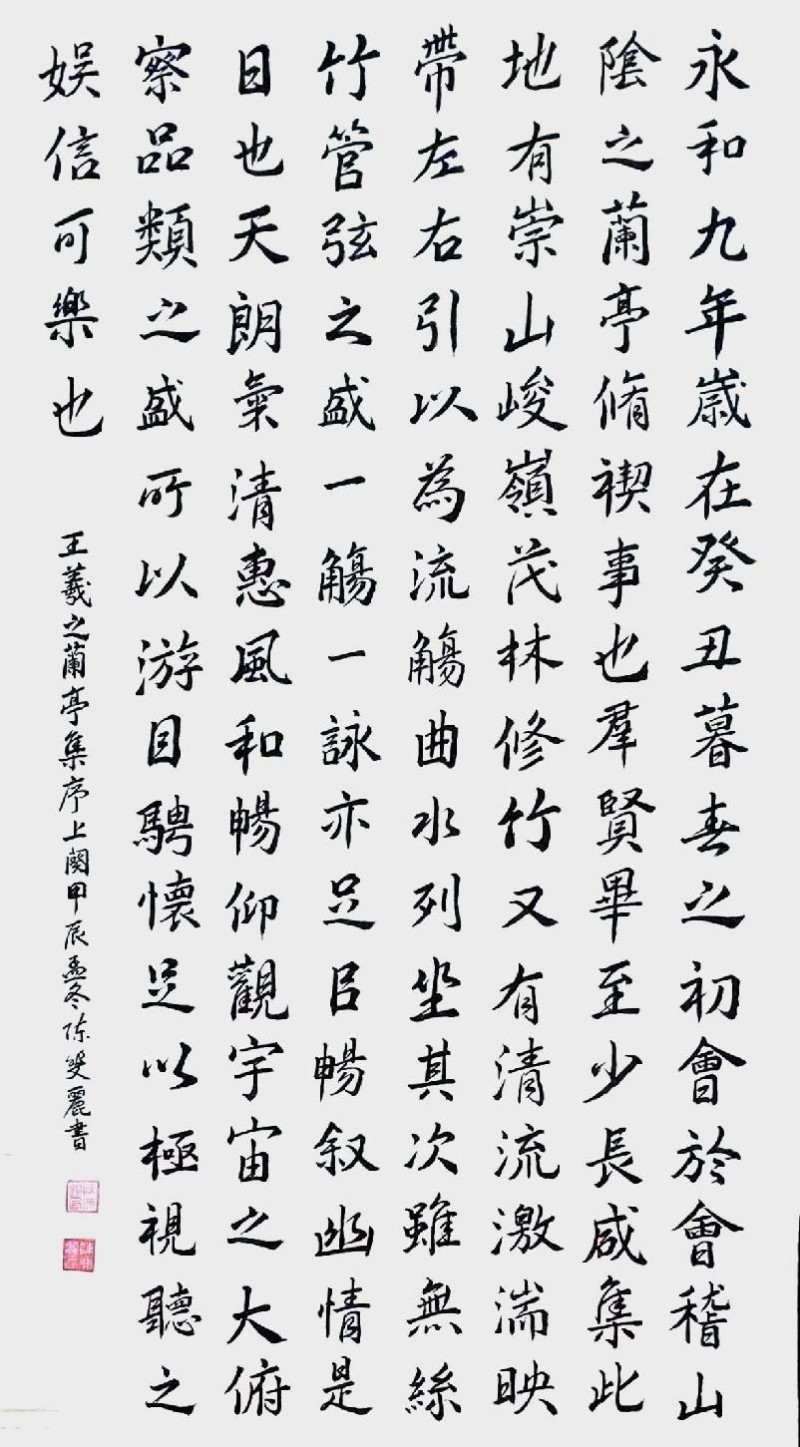 永和九年歲在癸丑暮春之初會於會稽山
陰之蘭亭脩禊事也羣賢畢至少長咸集此
地有崇山峻嶺茂林修竹又有清流激湍映
帶左右引以為流觴曲水列坐其次雖無絲
竹管弦之盛一觴一詠亦足㠯暢叙幽情是
日也天朗氣清惠風和暢仰觀宇宙之大俯
察品類之盛所以游目騁懷足以極視聽之
娛信可樂也
王羲之蘭亭集序上闋甲辰孟冬陈雙麗書